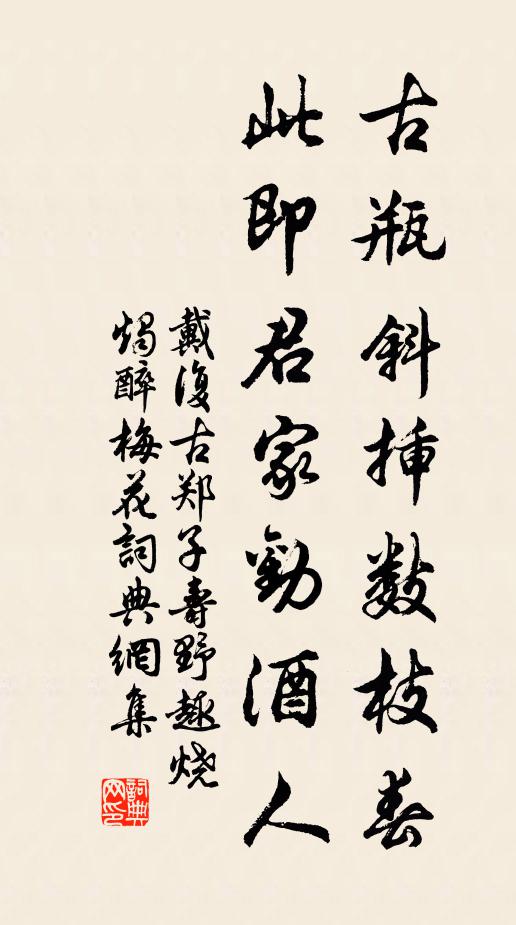 古瓶斜插数枝春
此即君家勸酒人
戴復古郑子壽野趣烧
燭醉梅花詞典網集
詞典网印